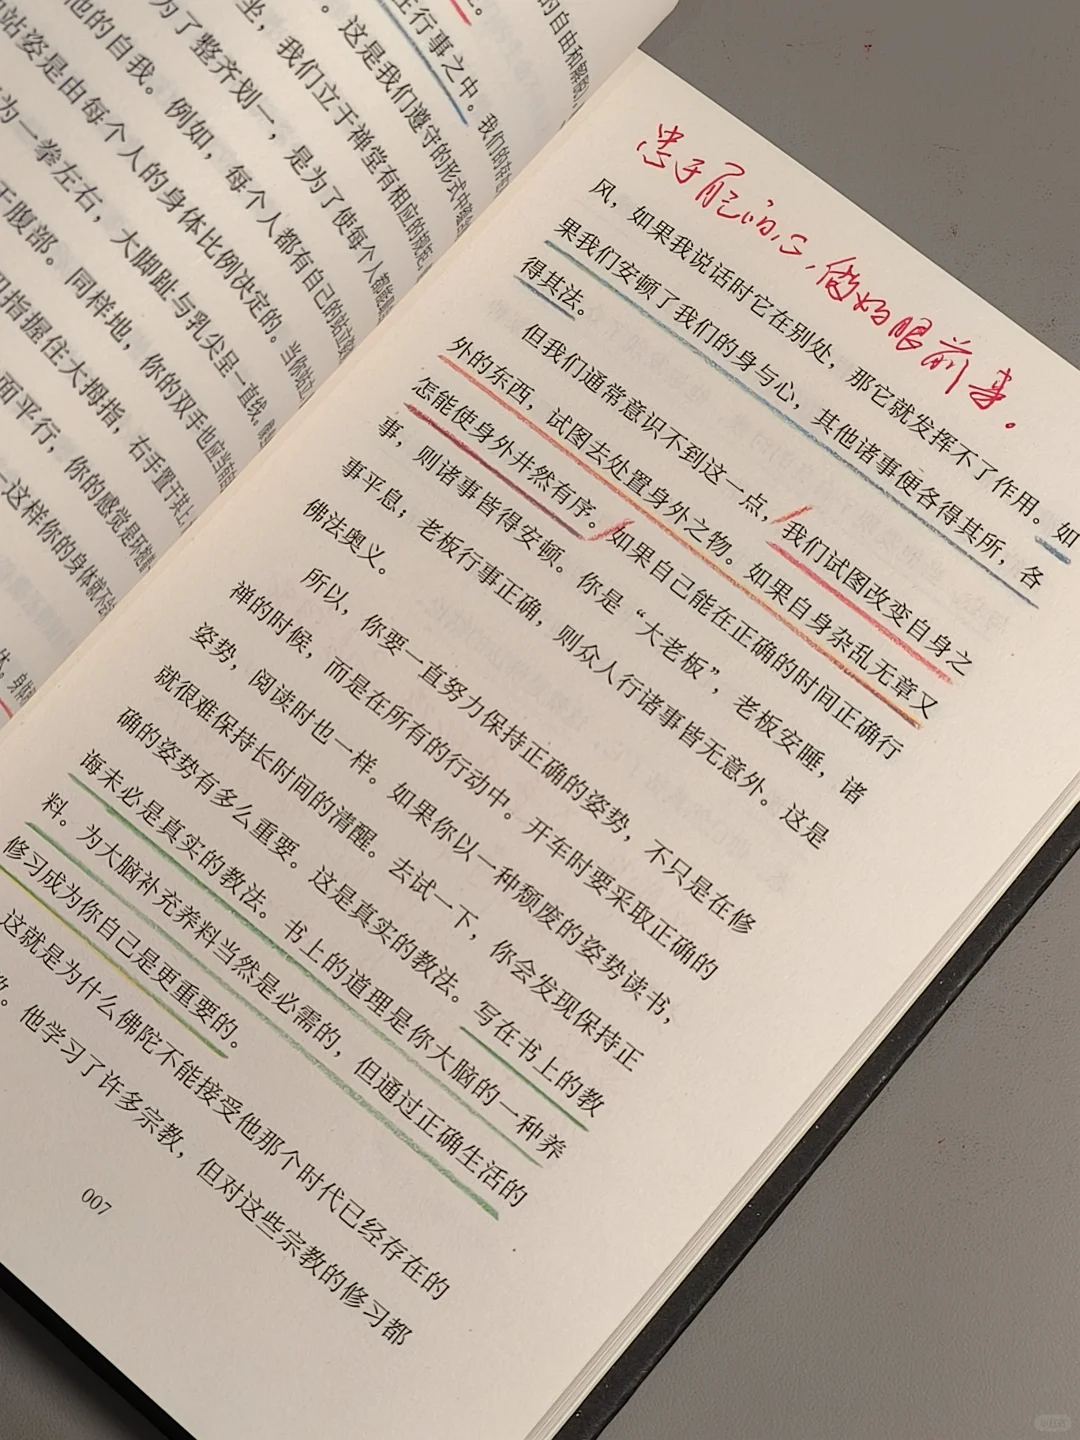 的自由和解脱
在行事之中。我们的
。这是我们遵守的形式中
坐,我们立于禅堂有相应的规矩
为了整齐划一,是为了使每个人都能
他的自我。例如,每个人都有自己的站立
站姿是由每个人的身体比例决定的。当你站立
为一拳左右,大脚趾与乳尖呈一直线。
于腹部。同样地,你的双手也应当
四指握住大拇指,右手置于其上
面平行,你的感觉是
这样你的身体就不会
忠于 心,做好眼前事。
风,如果我说话时它在别处,那它就发挥不了作用。如
果我们安顿了我们的身与心,其他诸事便各得其所,各
得其法。
但我们通常意识不到这一点,我们试图改变自身之
外的东西,试图去处置身外之物。如果自身杂乱无章又
怎能使身外井然有序。如果自己能在正确的时间正确行
事,则诸事皆得安顿。你是“大老板”,老板安睡,诸
事平息;老板行事正确,则众人行诸事皆无意外。这是
佛法奥义。
所以,你要一直努力保持正确的姿势,不只是在修
禅的时候,而是在所有的行动中。开车时要采取正确的
姿势,阅读时也一样。如果你以一种颓废的姿势读书,
就很难保持长时间的清醒。去试一下,你会发现保持正
确的姿势有多么重要。这是真实的教法。写在书上的教
海未必是真实的教法。书上的道理是你大脑的一种养
料。为大脑补充养料当然是必需的,但通过正确生活的
修习成为你自己是更重要的。
这就是为什么佛陀不能接受他那个时代已经存在的
。他学习了许多宗教,但对这些宗教的修习都
007